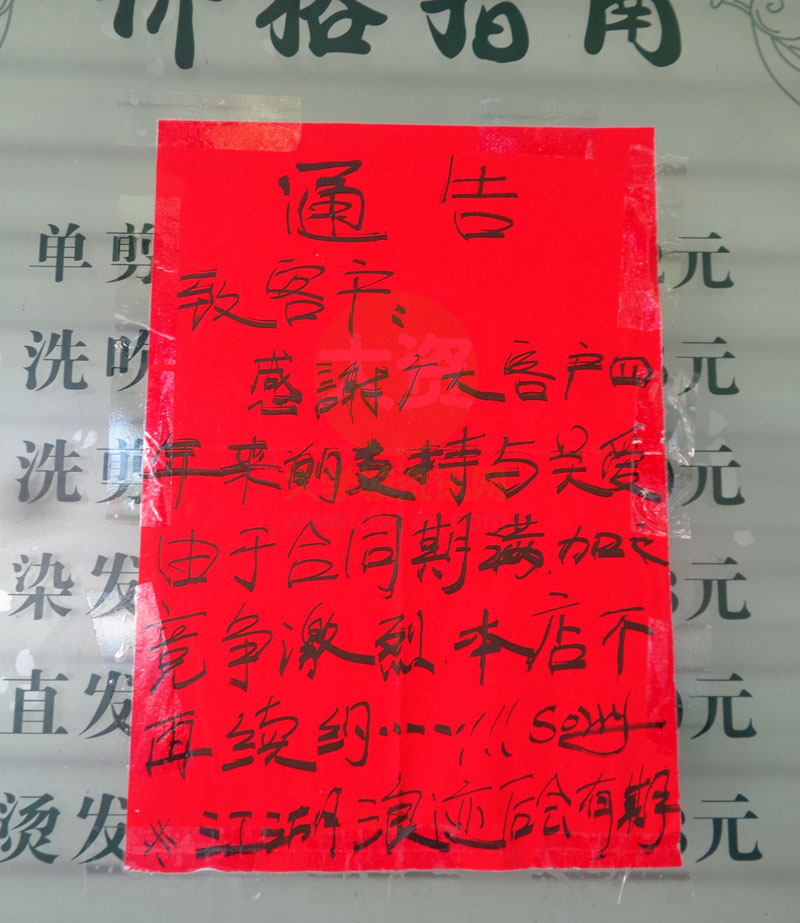 价格指南
通告
单剪 元
致客户：
洗吹 元
感謝广大客户四
洗剪 元
年来的支持与关爱
由于合同期满.加之
染发 元
竞争激烈.本店不
直发 元
再续约……!!! Sorry
烫发 元
※江湖浪迹后会有期